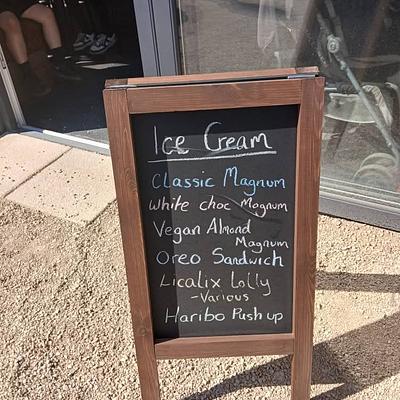 Ice Cream
Classic Magnum
White choc Magnum
Vegan Almond
Magnum
Oreo Sandwich
Licalix Lolly
- Various
Haribo Push up